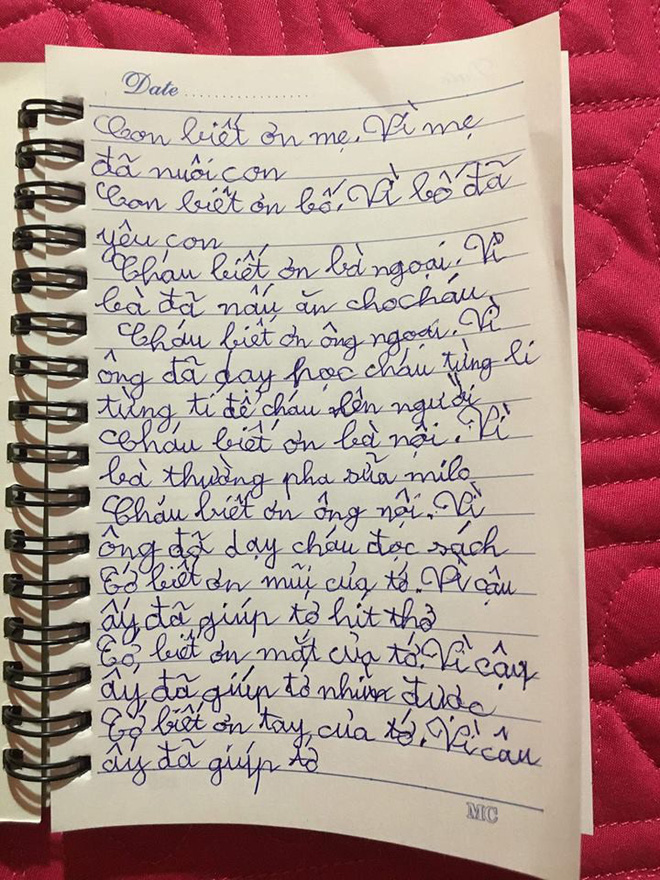 Date ................
Con biết ơn mẹ. Vì mẹ
đã nuôi con
Con biết ơn bố. Vì bố đã
yêu con
Cháu biết ơn bà ngoại. Vì
bà đã nấu ăn cho cháu
Cháu biết ơn ông ngoại. Vì
ông đã dạy học cháu từng li
từng tí để cháu lên người
Cháu biết ơn bà nội. Vì
bà thường pha sữa milo
Cháu biết ơn ông nội. Vì
ông đã dạy cháu đọc sách
Tớ biết ơn mũi của tớ. Vì cậu
ấy đã giúp tớ hít thở
Tớ biết ơn mắt của tớ. Vì cậu
ấy đã giúp tớ nhìn được
Tớ biết ơn tay của tớ. Vì cậu
ấy đã giúp tớ
MC